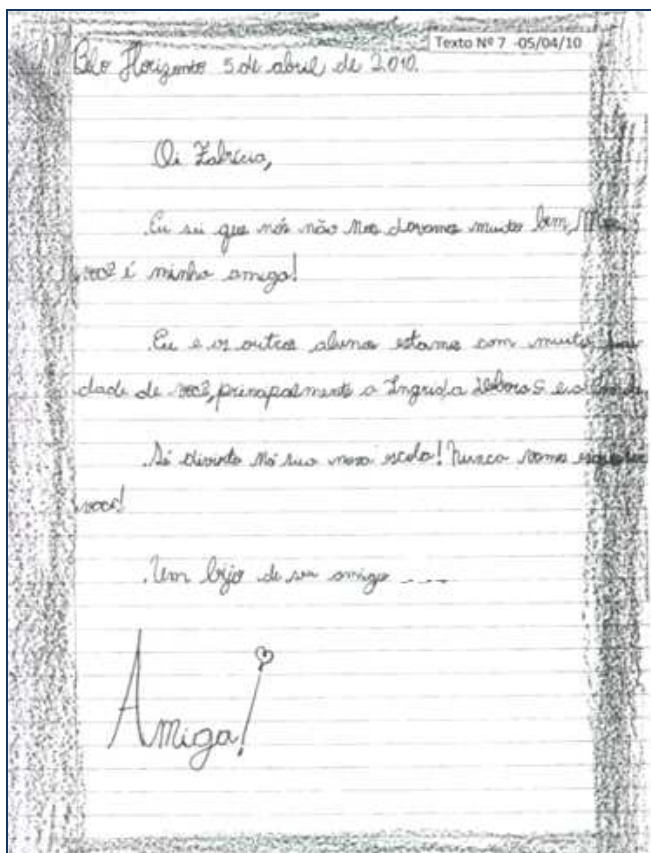 Texto Nº 7 -05/04/10
Belo Horizonte 5 de abril de 2.010.
Oi Fabrícia,
Eu sei que nós não nos dávamos muito bem, Mas,
você é minha amiga!
Eu e os outros alunos estamos com muita sau
dade de você, principalmente a Ingrid, a Débora S. e a
Se divirta na sua nova escola! Nunca vamos esquecer
você!
Um bejo de sua amiga ....
Amiga!